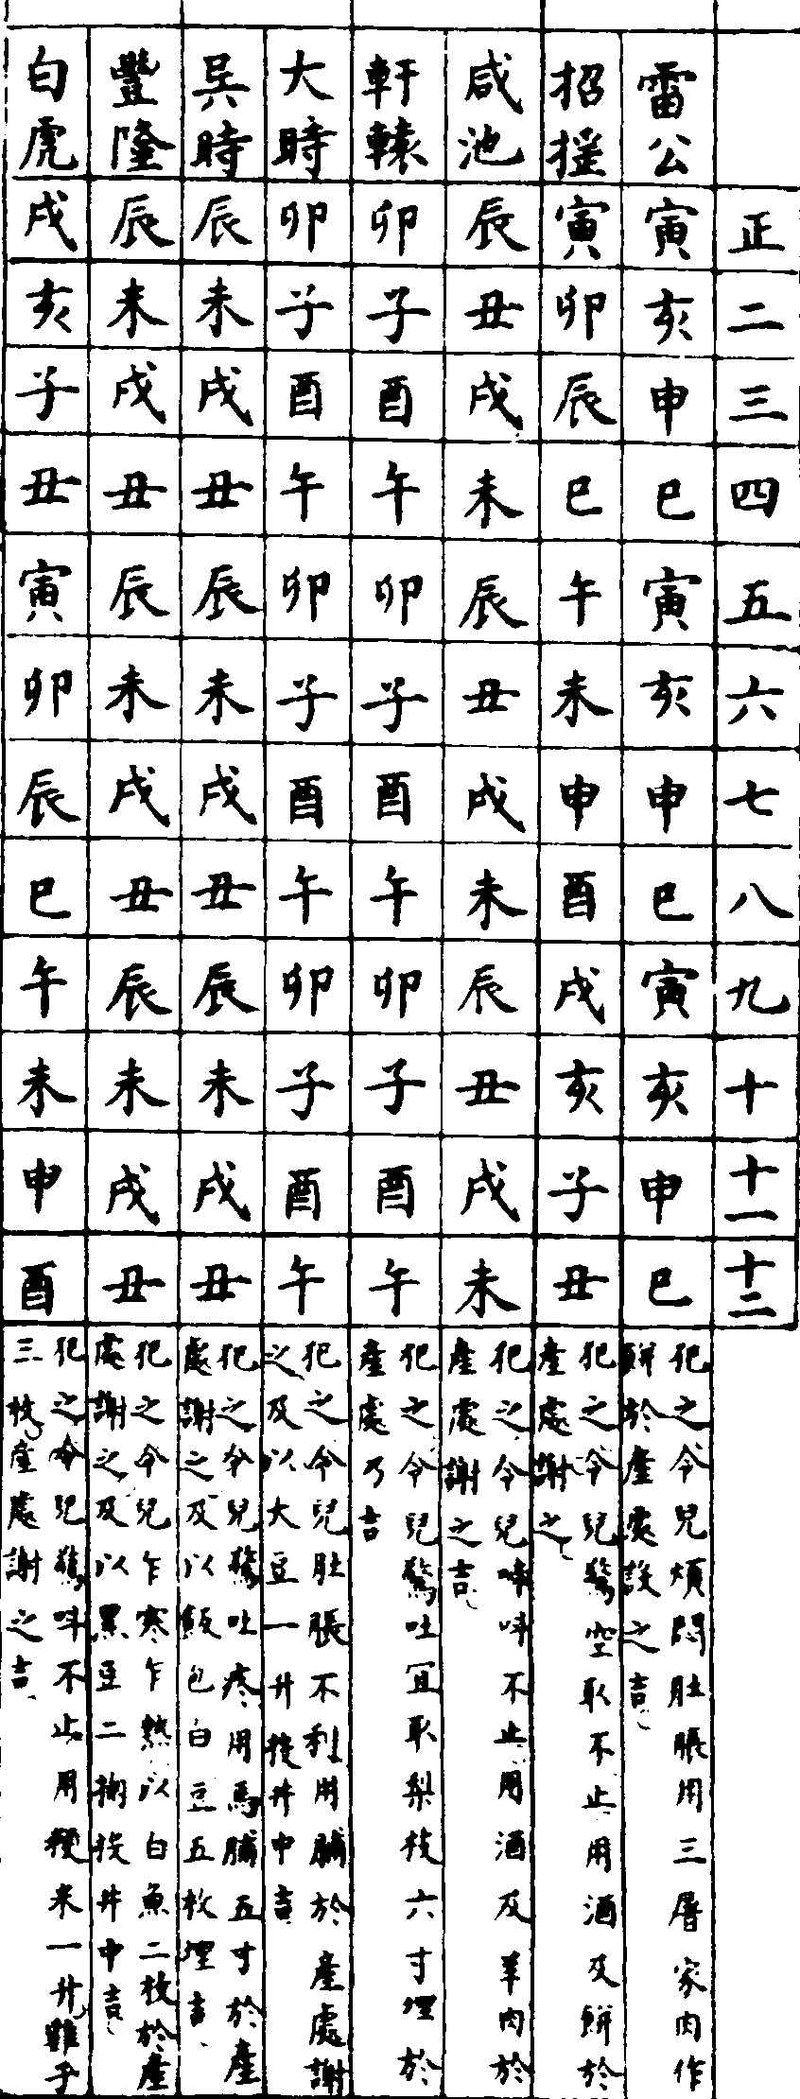 正 二 三 四 五 六 七 八 九 十 十一 十二
雷公 寅 亥 申 巳 寅 亥 申 巳 寅 亥 申 巳
犯之令兒煩悶肚脹用三屠家肉作
餅於產處設之吉
招搖 寅 卯 辰 巳 午 未 申 酉 戌 亥 子 丑
犯之令兒驚空取不止用酒及餅於
產處謝之
咸池 辰 丑 戌 未 辰 丑 戌 未 辰 丑 戌 未
犯之令兒啼呌不止用酒及羊肉於
產處謝之吉
軒轅 卯 子 酉 午 卯 子 酉 午 卯 子 酉 午
犯之令兒驚吐宜取梨枝六寸埋於
產處乃吉
大時 卯 子 酉 午 卯 子 酉 午 卯 子 酉 午
犯之令兒肚脹不利用脯於產處謝
之及以大豆一升投井中吉
吳時 辰 未 戌 丑 辰 未 戌 丑 辰 未 戌 丑
犯之令兒驚吐疼用馬脯五寸於產
處謝之及以飯包白豆五枚埋吉
豐隆 辰 未 戌 丑 辰 未 戌 丑 辰 未 戌 丑
犯之令兒乍寒乍熱以白魚二枚於產
處謝之及以黑豆二掬投井中吉
白虎 戌 亥 子 丑 寅 卯 辰 巳 午 未 申 酉
犯之令兒驚呌不止用粳米一升雞子
三枚產處謝之吉